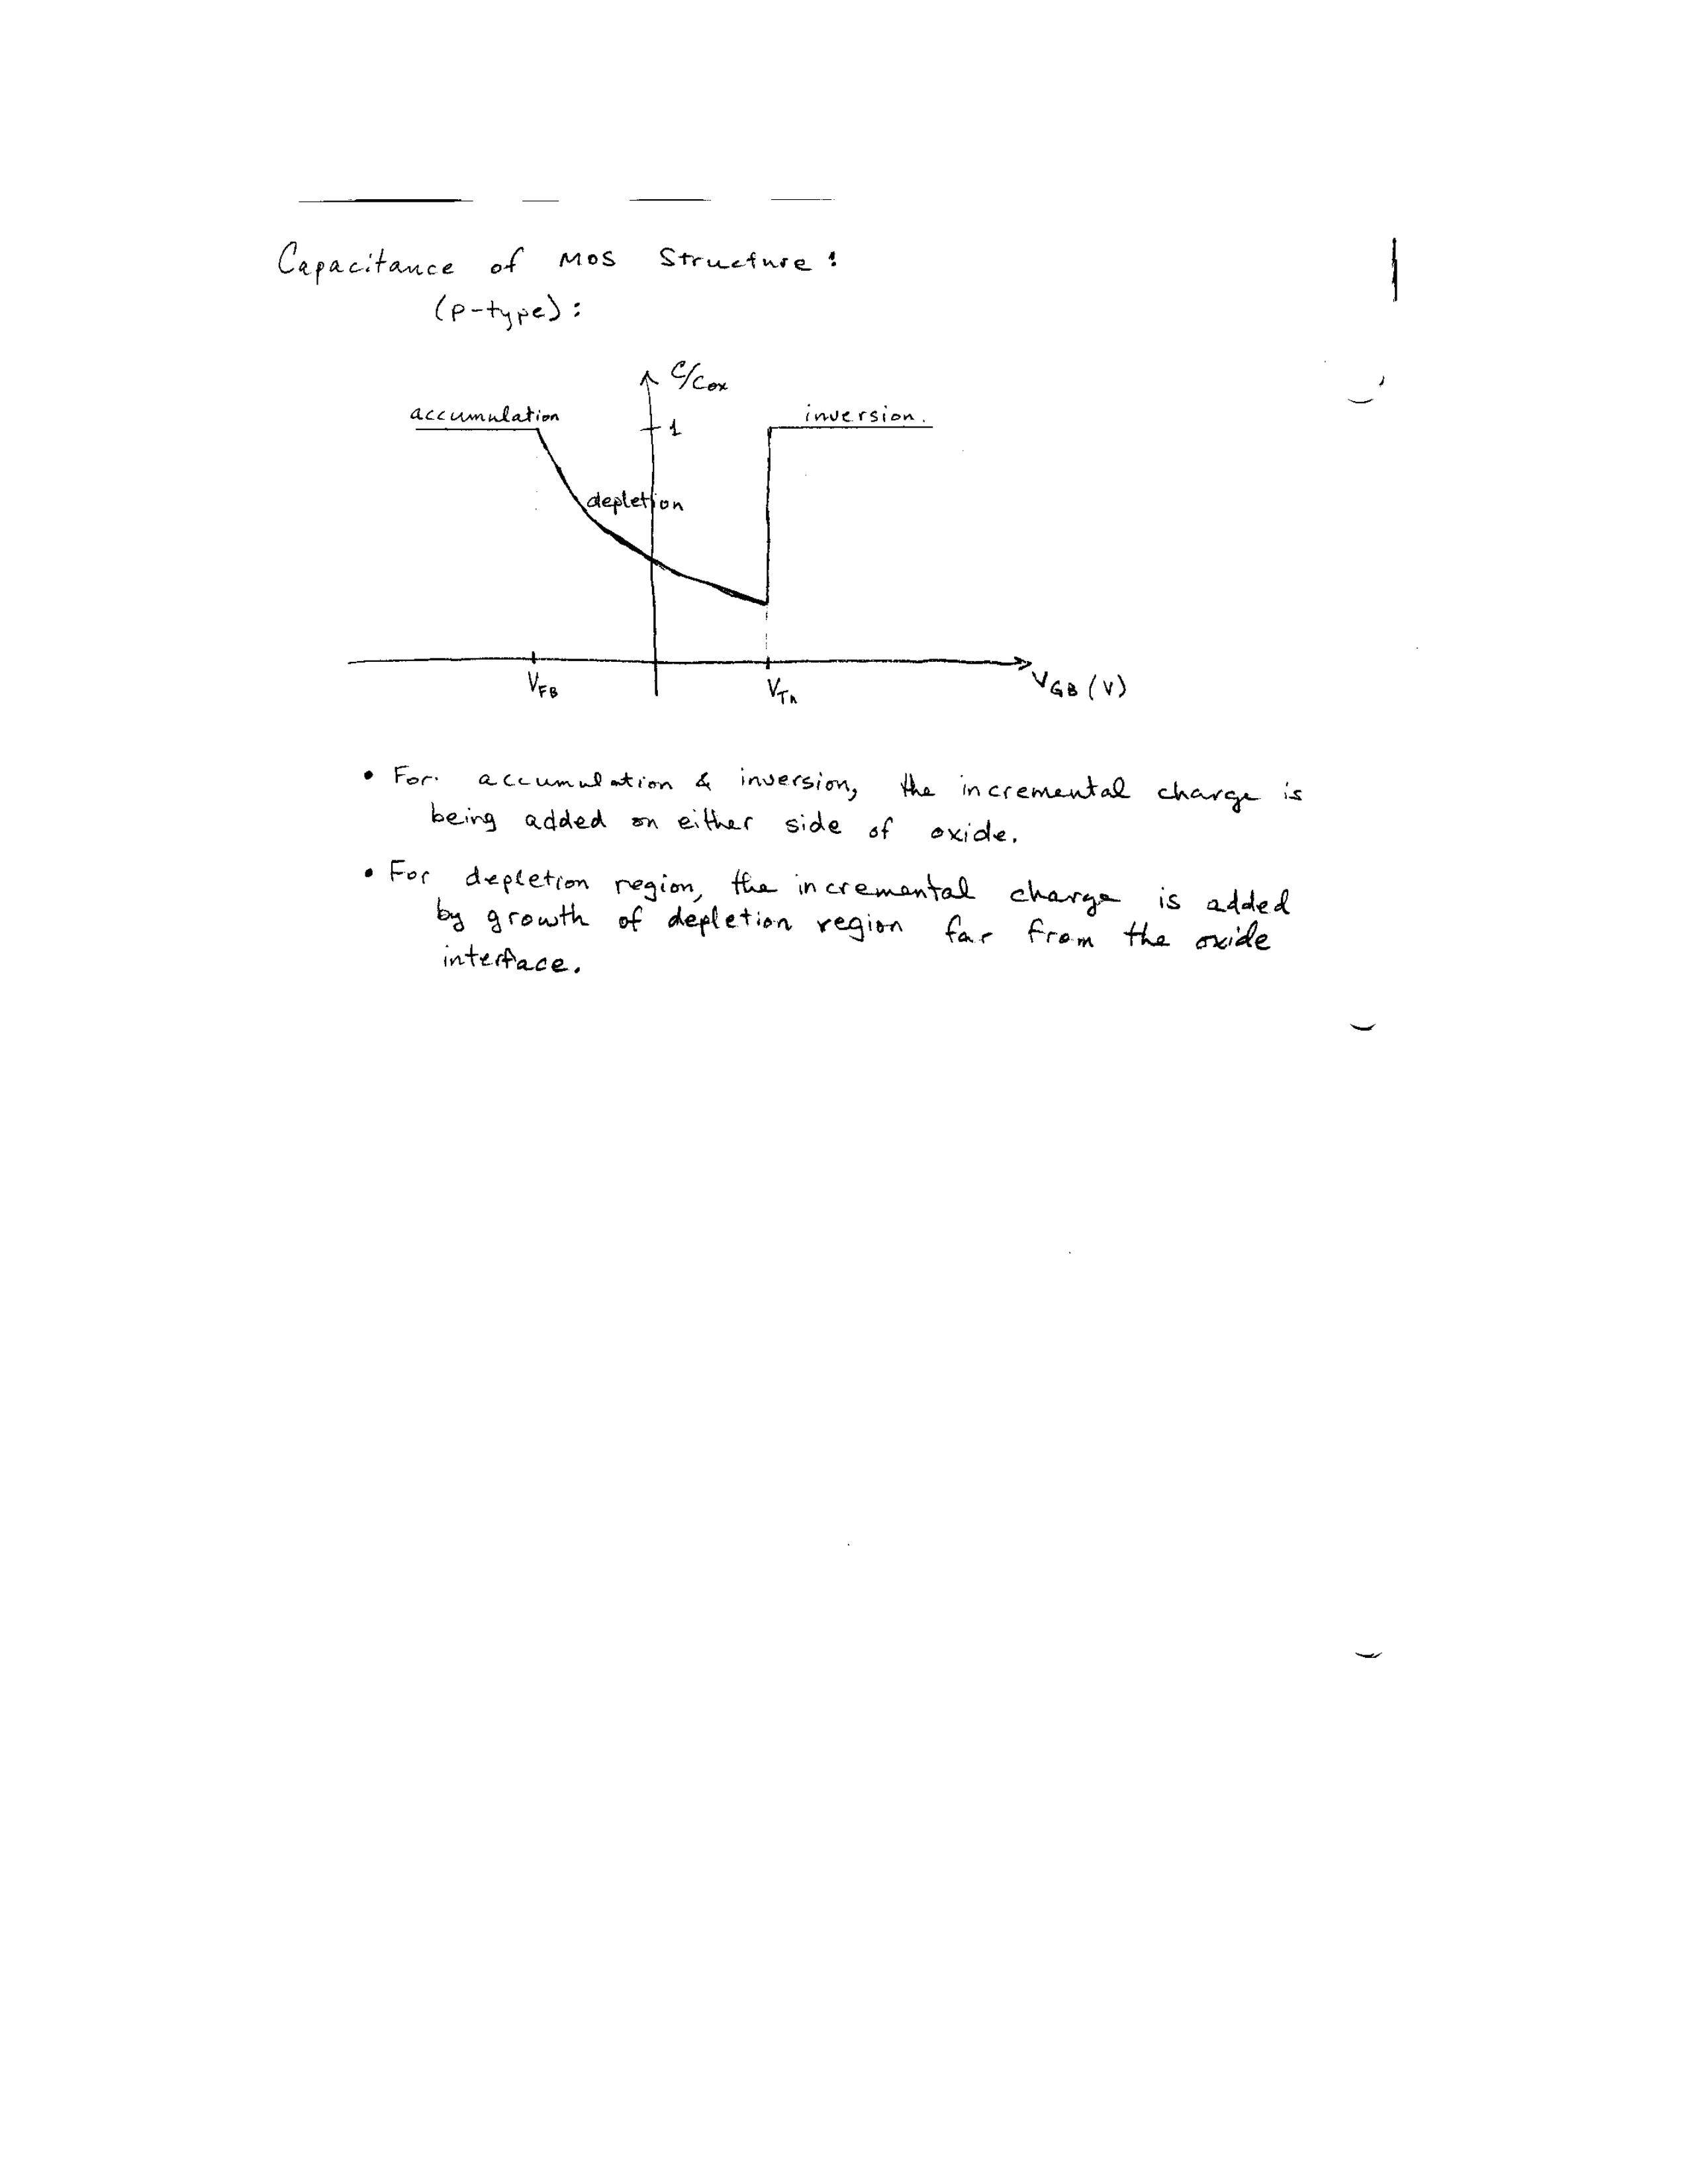 Capacitance of MOS Structure:
(p-type):
C/Cox
accumulation
1
inversion.
depletion
VFB
VTn
VGB (V)
• For accumulation & inversion, the incremental charge is
being added on either side of oxide.
• For depletion region, the incremental charge is added
by growth of depletion region far from the oxide
interface.